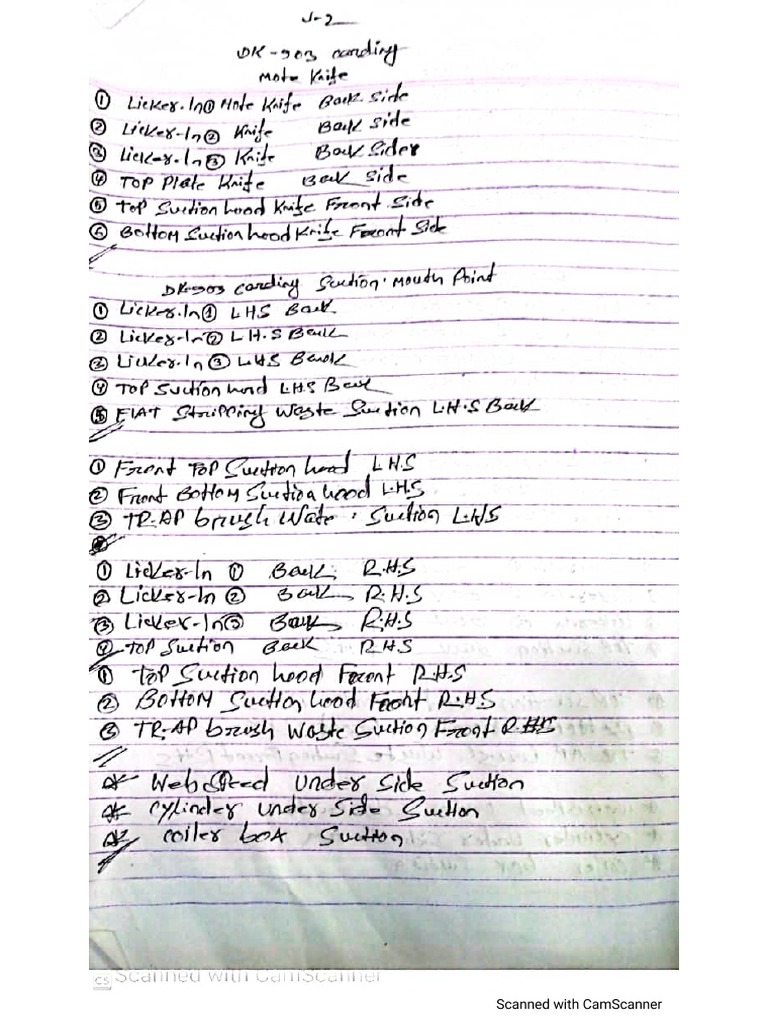 J-2
DK-903 carding
Mote Knife
① Licker-In① Mote Knife Back Side
② Licker-In② Knife Back Side
③ Licker-In③ Knife Back Sider
④ TOP Plate Knife Back Side
⑤ Top Suction hood Knife Front Side
⑥ Bottom Suction hood Knife Front Side
DK-903 carding Suction. Mouth Point
① Licker.In① LHS Back
② Licker-In② L H.S Back
③ Licker.In③ LHS Back
④ TOP Suction hood LHS Back
⑤ FlAT Stripping Waste Suction L.H.S Back
① Front TOP Suction hood LHS
② Front Bottom Suction hood LHS
③ TR-AP brush Wate. Suction LHS
① Licker-In ① Back R.H.S
② Licker-In ② Back R.H.S
③ Licker-In③ Back R.H.S
④ TOP Suction Back RHS
① TOP Suction hood Foront R.H.S
② Bottom Suction hood Foont R.H.S
③ TR-AP brush Waste Suction Front RHS
* Web Speed under Side Suction
* cylinder under Side Suction
* coiler box Suction
CS Scanned with CamScanner
Scanned with CamScanner